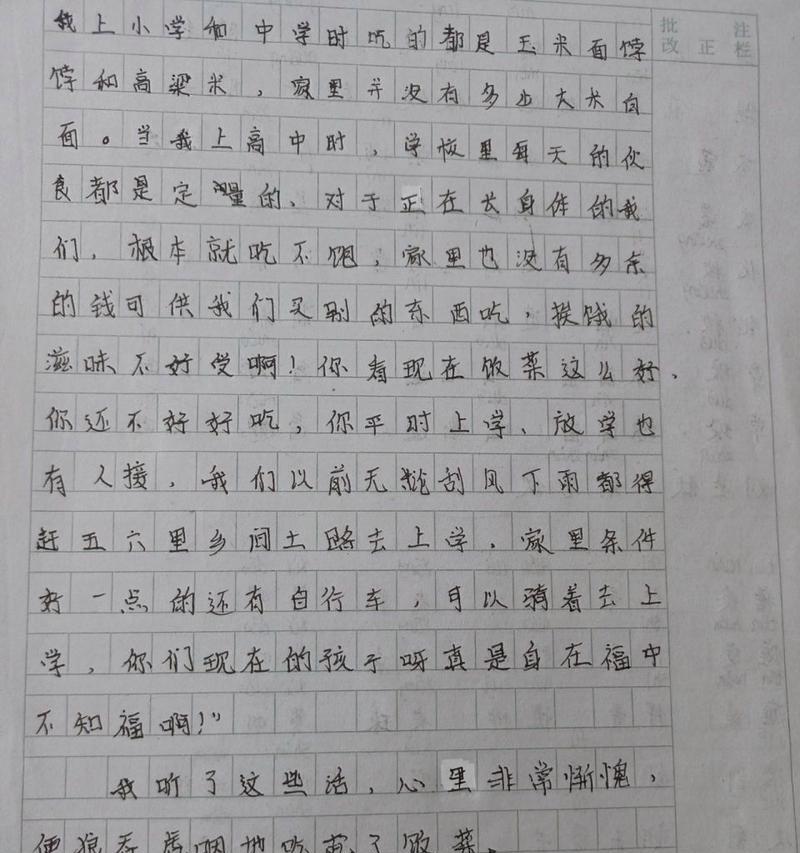 批改 正 注栏
我上小学和中学时吃的都是玉米面饽
饽和高粱米，家里并没有多少大米白
面。当我上高中时，学校里每天的伙
食都是定量的、对于正在长身体的我
们，根本就吃不饱，家里也没有多余
的钱可供我们买别的东西吃，挨饿的
滋味不好受啊！你看现在饭菜这么好，
你还不好好吃，你平时上学、放学也
有人接，我们以前无论刮风下雨都得
赶五六里乡间土路去上学，家里条件
好一点的还有自行车，可以骑着去上
学，你们现在的孩子呀真是自在福中
不知福啊！”
我听了这些话，心里非常惭愧，
便狼吞虎咽地吃完了饭菜。